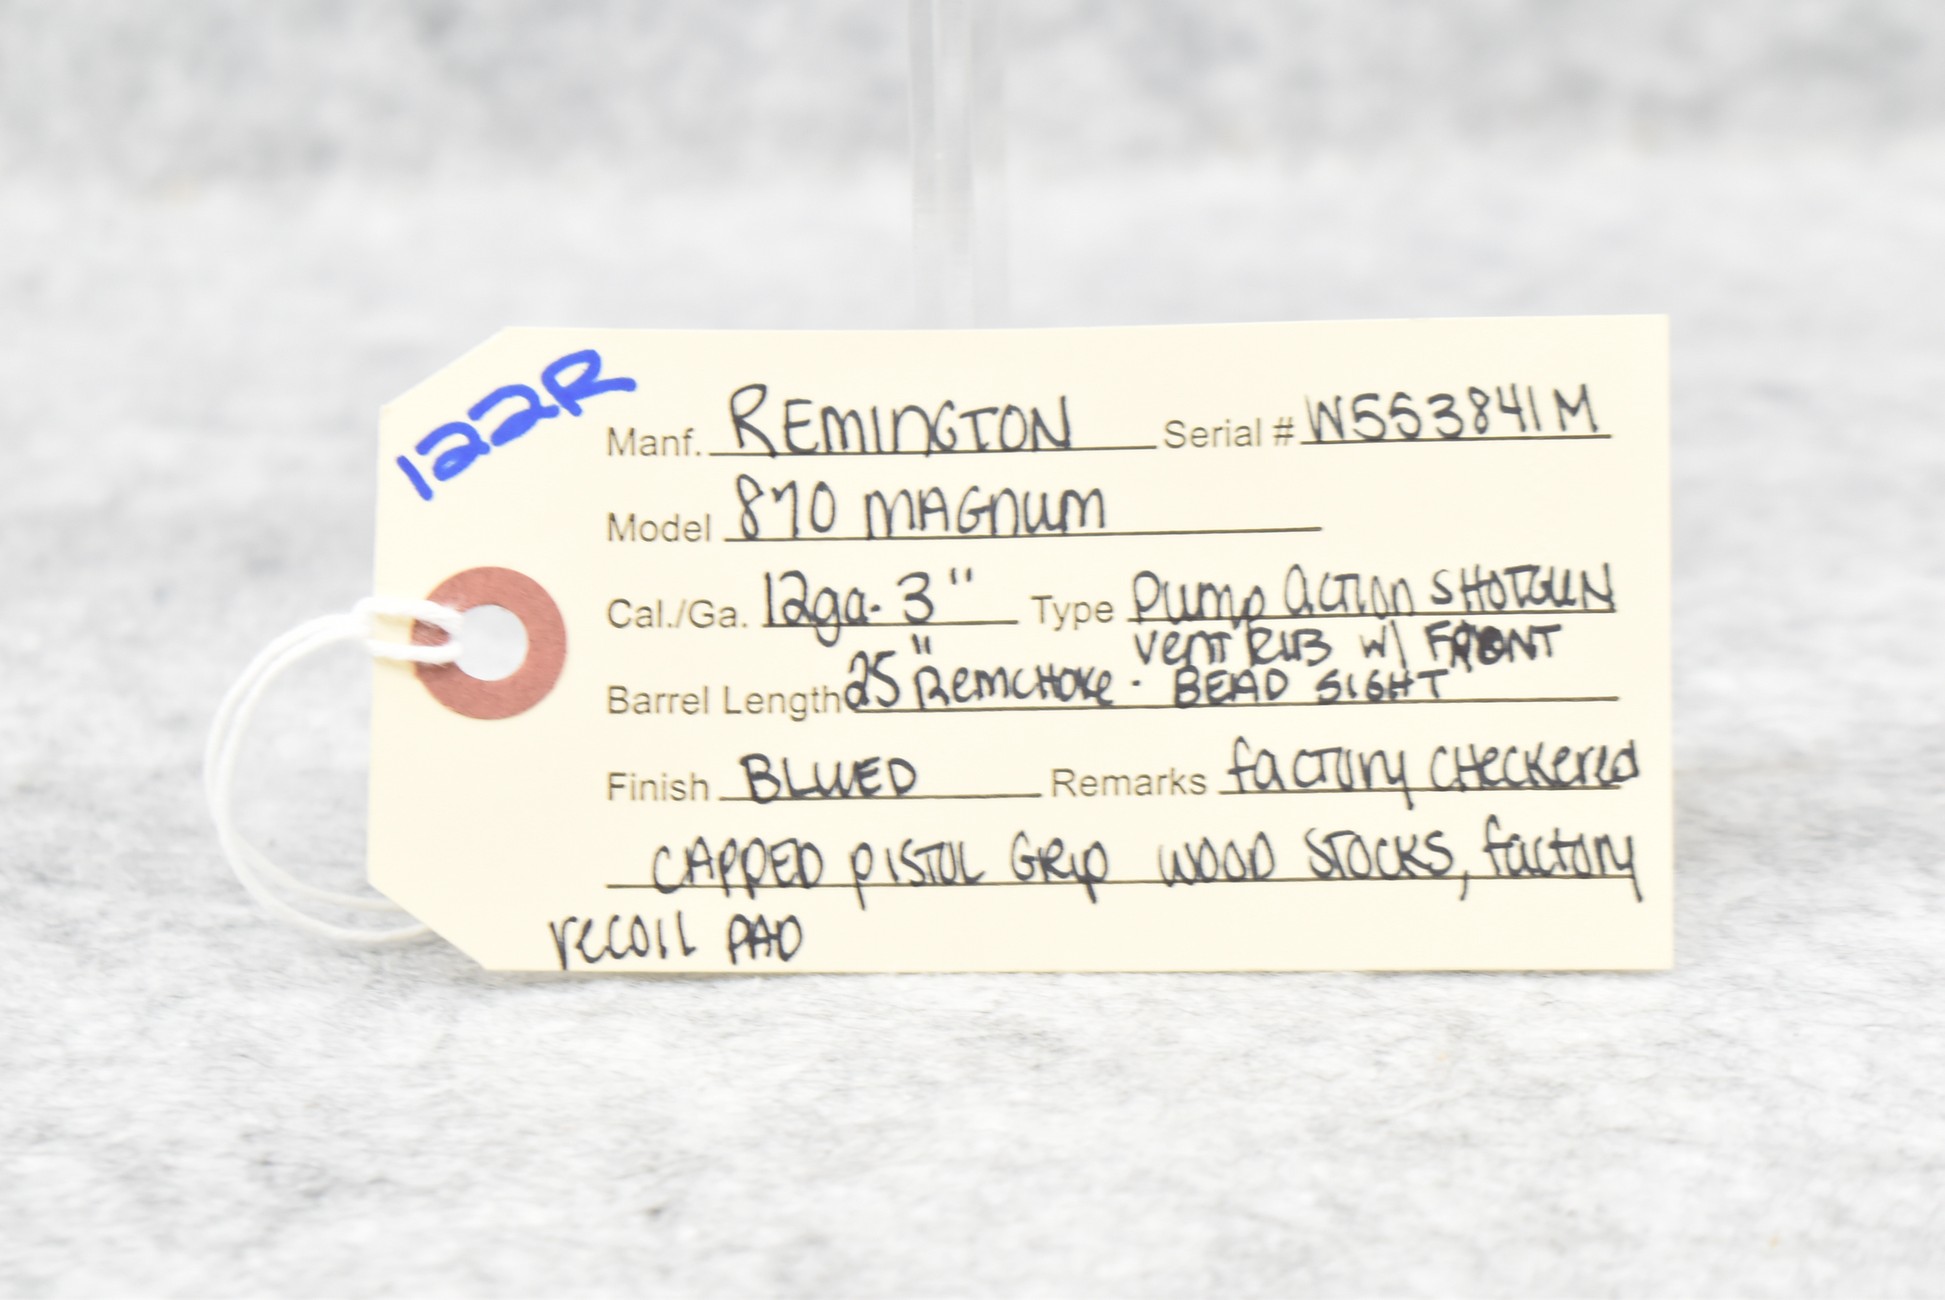 122R
Manf. REMINGTON Serial # W553841M
Model 870 MAGNUM
Cal./Ga. 12ga. 3" Type Pump Action SHOTGUN
Barrel Length 25" Remchoke - Vent Rib w/ FRONT
BEAD SIGHT
Finish BLUED Remarks factory CHeckered
CAPPED PISTOL GRip WOOD STOCKS, factory
recoil PAD